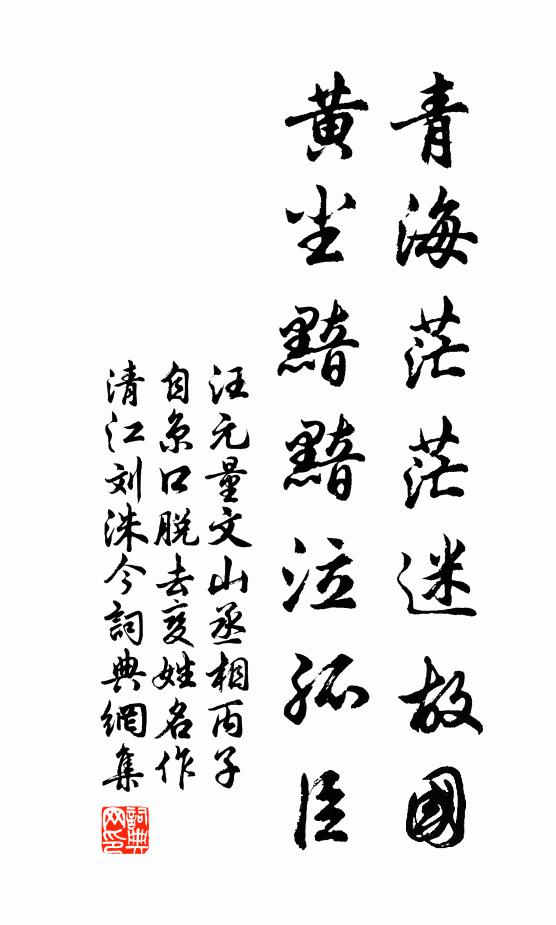 青海茫茫迷故國
黄尘黯黯泣孤臣
汪元量文山丞相丙子
自京口脱去变姓名作
清江刘洙今詞典網集
詞典网印